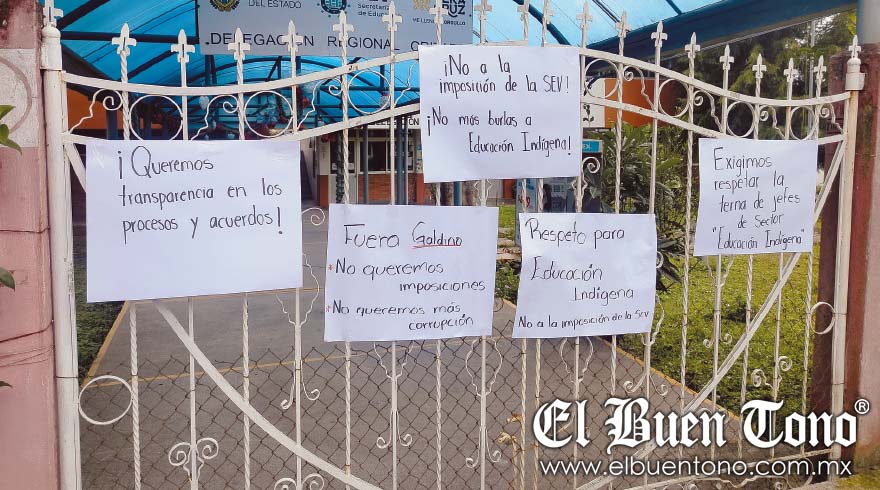 DEL ESTADO
Secretaría
de Educación
ORGULLO
DELEGACIÓN REGIONAL
¡No a la
imposición de la SEV!
¡No más burlas a
Educación Indígena!
¡Queremos
transparencia en los
procesos y acuerdos!
Fuera Galdino
*No queremos
imposiciones
*No queremos más
corrupción
Respeto para
Educación
Indígena
No a la imposición de la SEV
Exigimos
respetar la
terna de jefes
de Sector
"Educación Indígena"
El Buen Tono®
www.elbuentono.com.mx